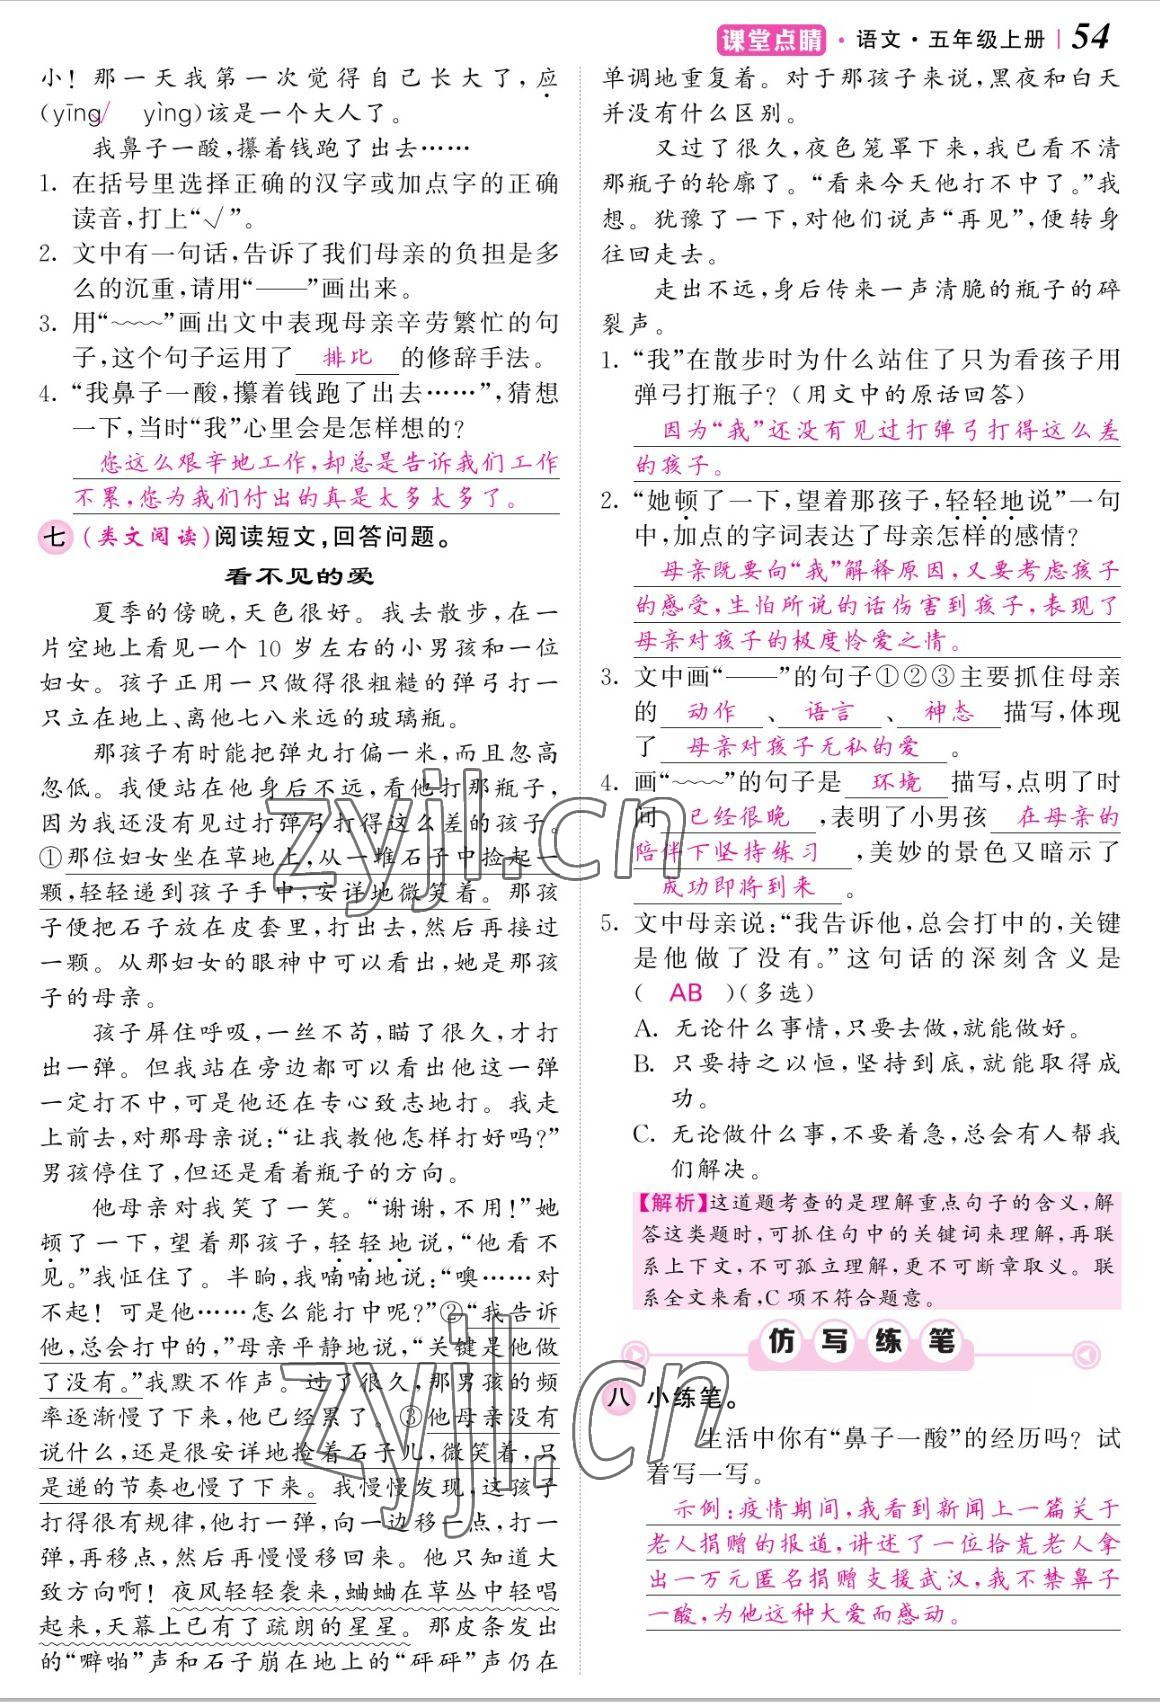 课堂点睛·语文·五年级上册 54
小！那一天我第一次觉得自己长大了，应
(yīng√ yìng)该是一个大人了。
我鼻子一酸，攥着钱跑了出去……
1. 在括号里选择正确的汉字或加点字的正确
读音，打上“√”。
2. 文中有一句话，告诉了我们母亲的负担是多
么的沉重，请用“——”画出来。
3. 用“﹏﹏”画出文中表现母亲辛劳繁忙的句
子，这个句子运用了 排比 的修辞手法。
4. “我鼻子一酸，攥着钱跑了出去……”，猜想
一下，当时“我”心里会是怎样想的？
您这么艰辛地工作，却总是告诉我们工作
不累，您为我们付出的真是太多太多了。
七 (类文阅读)阅读短文，回答问题。
看不见的爱
夏季的傍晚，天色很好。我去散步，在一
片空地上看见一个 10 岁左右的小男孩和一位
妇女。孩子正用一只做得很粗糙的弹弓打一
只立在地上、离他七八米远的玻璃瓶。
那孩子有时能把弹丸打偏一米，而且忽高
忽低。我便站在他身后不远，看他打那瓶子，
因为我还没有见过打弹弓打得这么差的孩子。
①那位妇女坐在草地上，从一堆石子中捡起一
颗，轻轻递到孩子手中，安详地微笑着。那孩
子便把石子放在皮套里，打出去，然后再接过
一颗。从那妇女的眼神中可以看出，她是那孩
子的母亲。
孩子屏住呼吸，一丝不苟，瞄了很久，才打
出一弹。但我站在旁边都可以看出他这一弹
一定打不中，可是他还在专心致志地打。我走
上前去，对那母亲说：“让我教他怎样打好吗？”
男孩停住了，但还是看着瓶子的方向。
他母亲对我笑了一笑。“谢谢，不用！”她
顿了一下，望着那孩子，轻轻地说，“他看不
见。”我怔住了。半晌，我喃喃地说：“噢……对
不起！可是他……怎么能打中呢？”②“我告诉
他，总会打中的，”母亲平静地说，“关键是他做
了没有。”我默不作声。过了很久，那男孩的频
率逐渐慢了下来，他已经累了。③他母亲没有
说什么，还是很安详地捡着石子儿，微笑着，只
是递的节奏也慢了下来。我慢慢发现，这孩子
打得很有规律，他打一弹，向一边移一点，打一
弹，再移点，然后再慢慢移回来。他只知道大
致方向啊！夜风轻轻袭来，蛐蛐在草丛中轻唱
起来，天幕上已有了疏朗的星星。那皮条发出
的“噼啪”声和石子崩在地上的“砰砰”声仍在
单调地重复着。对于那孩子来说，黑夜和白天
并没有什么区别。
又过了很久，夜色笼罩下来，我已看不清
那瓶子的轮廓了。“看来今天他打不中了。”我
想。犹豫了一下，对他们说声“再见”，便转身
往回走去。
走出不远，身后传来一声清脆的瓶子的碎
裂声。
1. “我”在散步时为什么站住了只为看孩子用
弹弓打瓶子？(用文中的原话回答)
因为“我”还没有见过打弹弓打得这么差
的孩子。
2. “她顿了一下，望着那孩子，轻轻地说”一句
中，加点的字词表达了母亲怎样的感情？
母亲既要向“我”解释原因，又要考虑孩子
的感受，生怕所说的话伤害到孩子，表现了
母亲对孩子的极度怜爱之情。
3. 文中画“——”的句子①②③主要抓住母亲
的 动作 、 语言 、 神态 描写，体现
了 母亲对孩子无私的爱 。
4. 画“﹏﹏”的句子是 环境 描写，点明了时
间 已经很晚 ，表明了小男孩 在母亲的
陪伴下坚持练习 ，美妙的景色又暗示了
成功即将到来 。
5. 文中母亲说：“我告诉他，总会打中的，关键
是他做了没有。”这句话的深刻含义是
( AB )(多选)
A. 无论什么事情，只要去做，就能做好。
B. 只要持之以恒，坚持到底，就能取得成
功。
C. 无论做什么事，不要着急，总会有人帮我
们解决。
【解析】这道题考查的是理解重点句子的含义，解
答这类题时，可抓住句中的关键词来理解，再联
系上下文，不可孤立理解，更不可断章取义。联
系全文来看，C 项不符合题意。
仿写练笔
八 小练笔。
生活中你有“鼻子一酸”的经历吗？试
着写一写。
示例：疫情期间，我看到新闻上一篇关于
老人捐赠的报道，讲述了一位拾荒老人拿
出一万元匿名捐赠支援武汉，我不禁鼻子
一酸，为他这种大爱而感动。
zyjl.cn
zyjl.cn